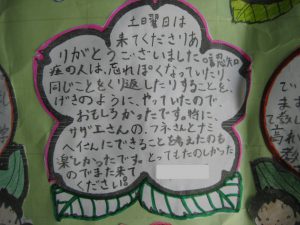 土曜日は
来てくださりあ
りがとうございました。認知
症の人は、忘れぽくなっていたり、
同じことをくり返したりすることを、
げきのように、やっていたので
おもしろかったです。特に
サザエさんの、フネさんとナミ
ヘイさんにできることを考えたのも
楽しかったです。とってもたのしかった
のでまた来て
ください。